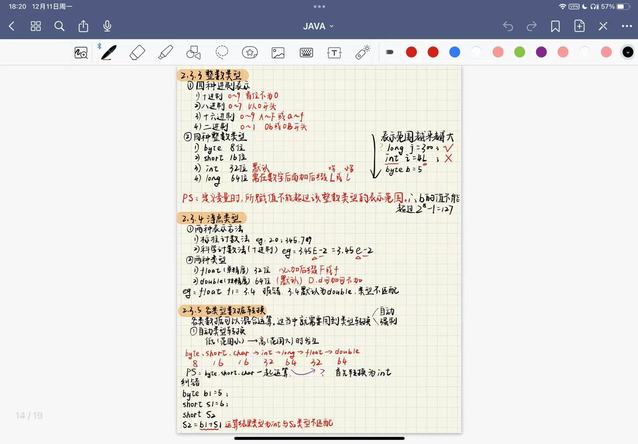 18:20 12月11日周一
57%
JAVA
2.3.3 整数类型
①四种进制表示
1)十进制 0~9 首位不为0
2)八进制 0~7 以0开头
3)十六进制 0~9 A~F或a~f
4)二进制 0~1 0b或0B开头
②四种整数类型
1) byte 8位
2) short 16位
3) int 32位 默认
4) long 64位 需在数字后面加后缀L或l
表示范围越来越大
long j=300; ✓
int i=4L; ✗
byte b=5
PS:定义变量时,所赋值不能超过该整数类型的表示范围,∴b的值不能
超过
-1=127
2.3.4 浮点类型
①两种表示方法
1)标准计数法 eg: 2.0; 345.789
2)科学计数法(十进制) eg: 3.45E-2=3.45e-2
②两种类型
1)float(单精度) 32位 必加后缀F或f
2)double(双精度) 64位 (默认) D.d可加可不加
eg: float f1=3.4 错, 3.4默认为double,类型不匹配
2.3.5 各类型数据转换
各类数据可以混合运算,这当中就需要用到类型转换
自动
强制
①自动类型转换
低(范围小)→高(范围大)时发生
byte.short.char→int→long→float→double
8 16 16 32 64 32 64
PS: byte.short.char一起运算 ? 首先转换为int
纠错
byte b1=5;
short s1=6;
short S2
S2=b1+S1 运算结果类型为int与S2类型不匹配
14 / 19